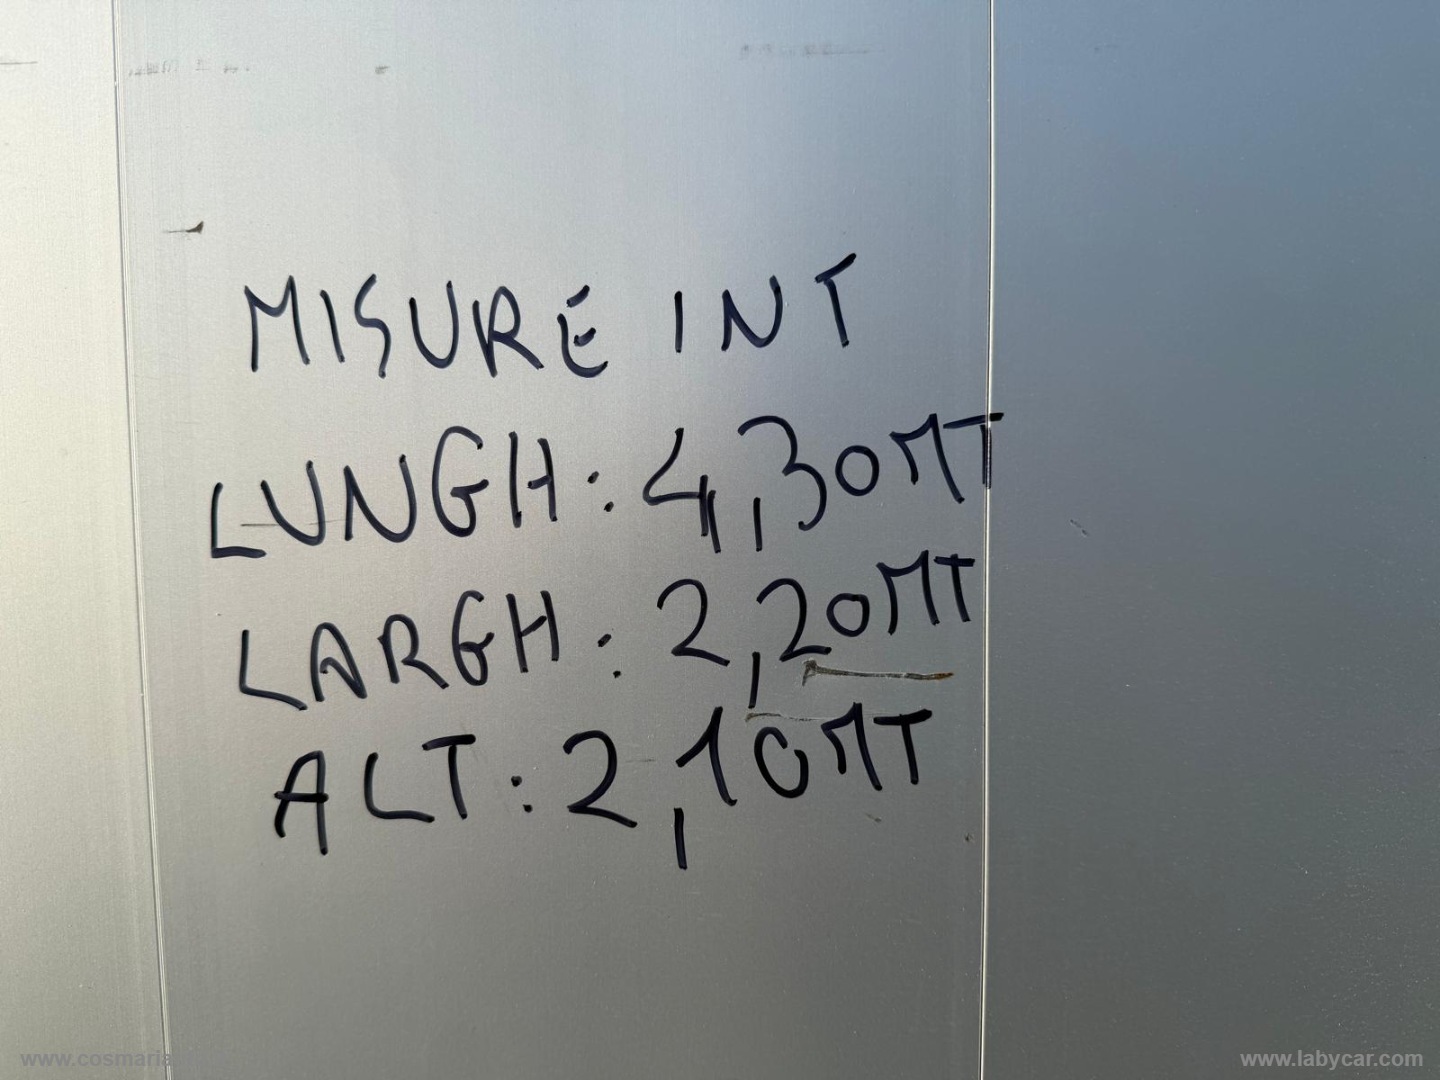 MISURE INT
LUNGH: 4,30MT
LARGH: 2,20MT
ALT: 2,10MT
www.labycar.com